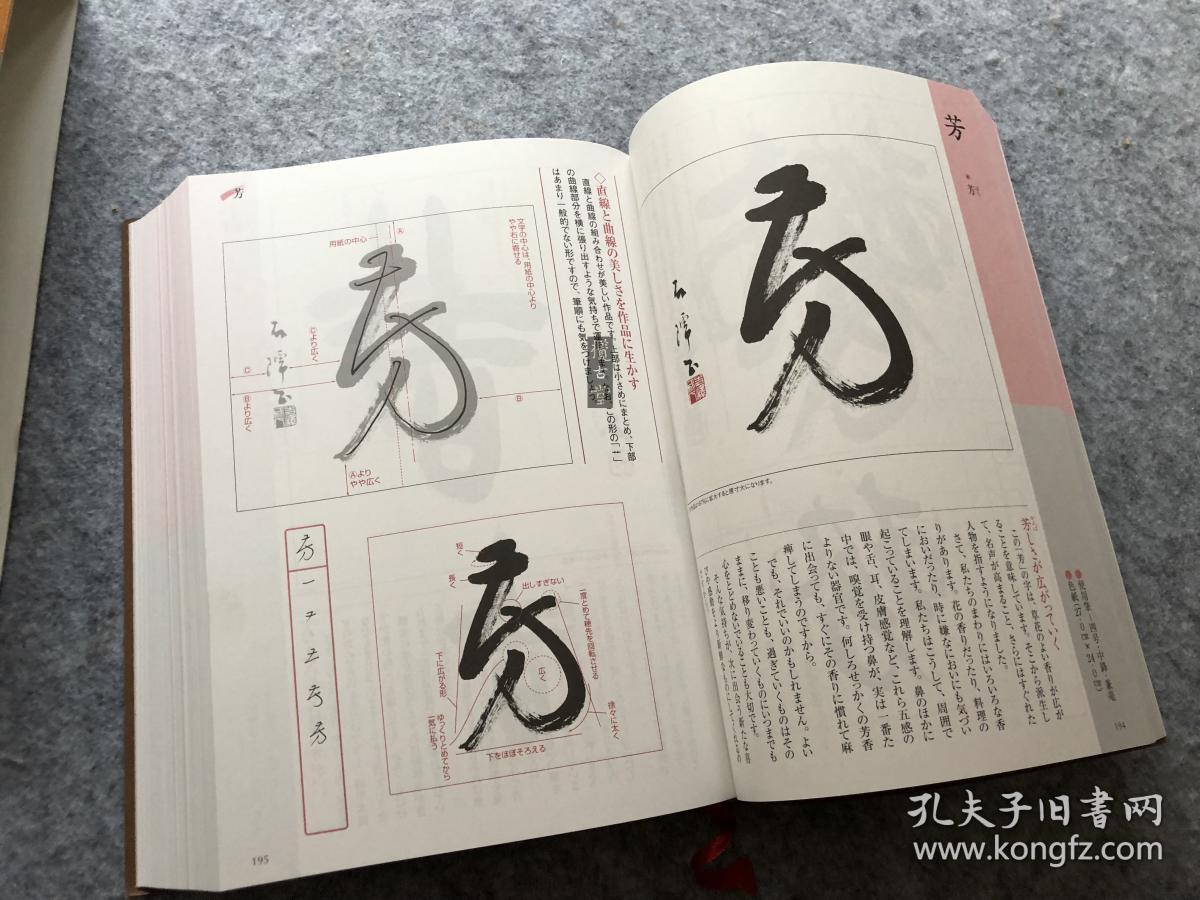 芳
芳
芳しさが広がっていく
この「芳」の字は、草花のよい香りが広が
ることを意味しています。そこから派生し
て、名声が高まること、さらにはすぐれた
人物を指すようになりました。
さて、私たちのまわりにはいろいろな香
りがあります。花の香りだったり、料理の
においだったり、時に嫌なにおいにも気づい
てしまいます。私たちはこうして、周囲で
起こっていることを理解します。鼻のほかに
眼や舌、耳、皮膚感覚など、これら五感の
中では、嗅覚を受け持つ鼻が、実は一番た
よりない器官です。何しろせっかくの芳香
に出会っても、すぐにその香りに慣れて麻
痺してしまうのですから。
でも、それでいいのかもしれません。よい
ことも悪いことも、過ぎていくものはその
ままに、移り変わっていくものにいつまでも
心をとどめないでいることも大切です。
そんな気持ちが、次に出会う新たな喜
194
芳
◇直線と曲線の美しさを作品に生かす
直線と曲線の組み合わせが美しい作品です。上部は小さめにまとめ、下部
の曲線部分を横に張り出すような気持ちで
この形の「艹」
はあまり一般的でない形ですので、筆順にも気をつけましょう。
文字の中心は、用紙の中心より
やや右に寄せる
用紙の中心
Ⓐ
Ⓒより広く
Ⓒ
Ⓑより広く
Ⓑ
Ⓐより
やや広く
短く
長く
出しすぎない
一度とめて穂先を回転させる
広く
下に広がる形
徐々に太く
ゆっくりとめてから
一気に払う
下をほぼそろえる
195
孔夫子旧書网
www.kongfz.com